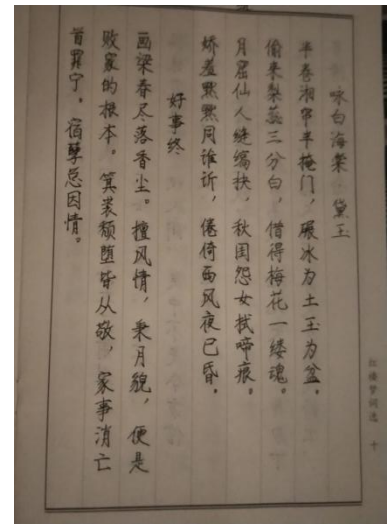 咏白海棠·黛玉
半卷湘帘半掩门，碾冰为土玉为盆。
偷来梨蕊三分白，借得梅花一缕魂。
月窟仙人缝缟袂，秋闺怨女拭啼痕。
娇羞默默同谁诉，倦倚西风夜已昏。
好事终
画梁春尽落香尘。擅风情，秉月貌，便是
败家的根本。箕裘颓堕皆从敬，家事消亡
首罪宁。宿孽总因情。
红楼梦词选 十